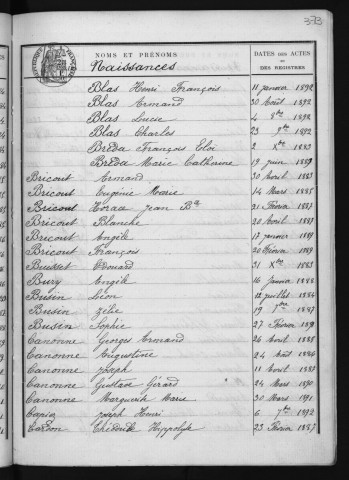 373
NOMS ET PRÉNOMS
DATES DES ACTES
ET
DES REGISTRES
Naissances
Blas Henri François 11 janvier 1892
Blas Armand 30 Août 1892
Blas Lucie 4 8bre 1892
Blas Charles 23 9bre 1892
Breda François Eloi 2 Xbre 1883
Breda Marie Catherine 19 juin 1889
Bricout Armand 30 Avril 1883
Bricout Eugénie Marie 14 Mars 1885
Bricout Horace Jean Bte 21 Février 1887
Bricout Blanche 20 Avril 1887
Bricout Angèle 17 janvier 1889
Bricout François 20 Février 1889
Busset Edouard 31 Xbre 1883
Bury Angèle 16 janvier 1888
Busin Léon 12 juillet 1884
Busin Zélie 19 1887
Busin Sophie 27 Février 1889
Canonne Georges Armand 26 Avril 1885
Canonne Augustine 24 Août 1886
Canonne Joseph 11 Avril 1887
Canonne Gustave Gérard 24 Mars 1890
Canonne Marguerite Marie 30 Mars 1891
Capia Joseph Henri 6 7bre 1892
Cardon Théodule Hippolyte 23 Février 1887